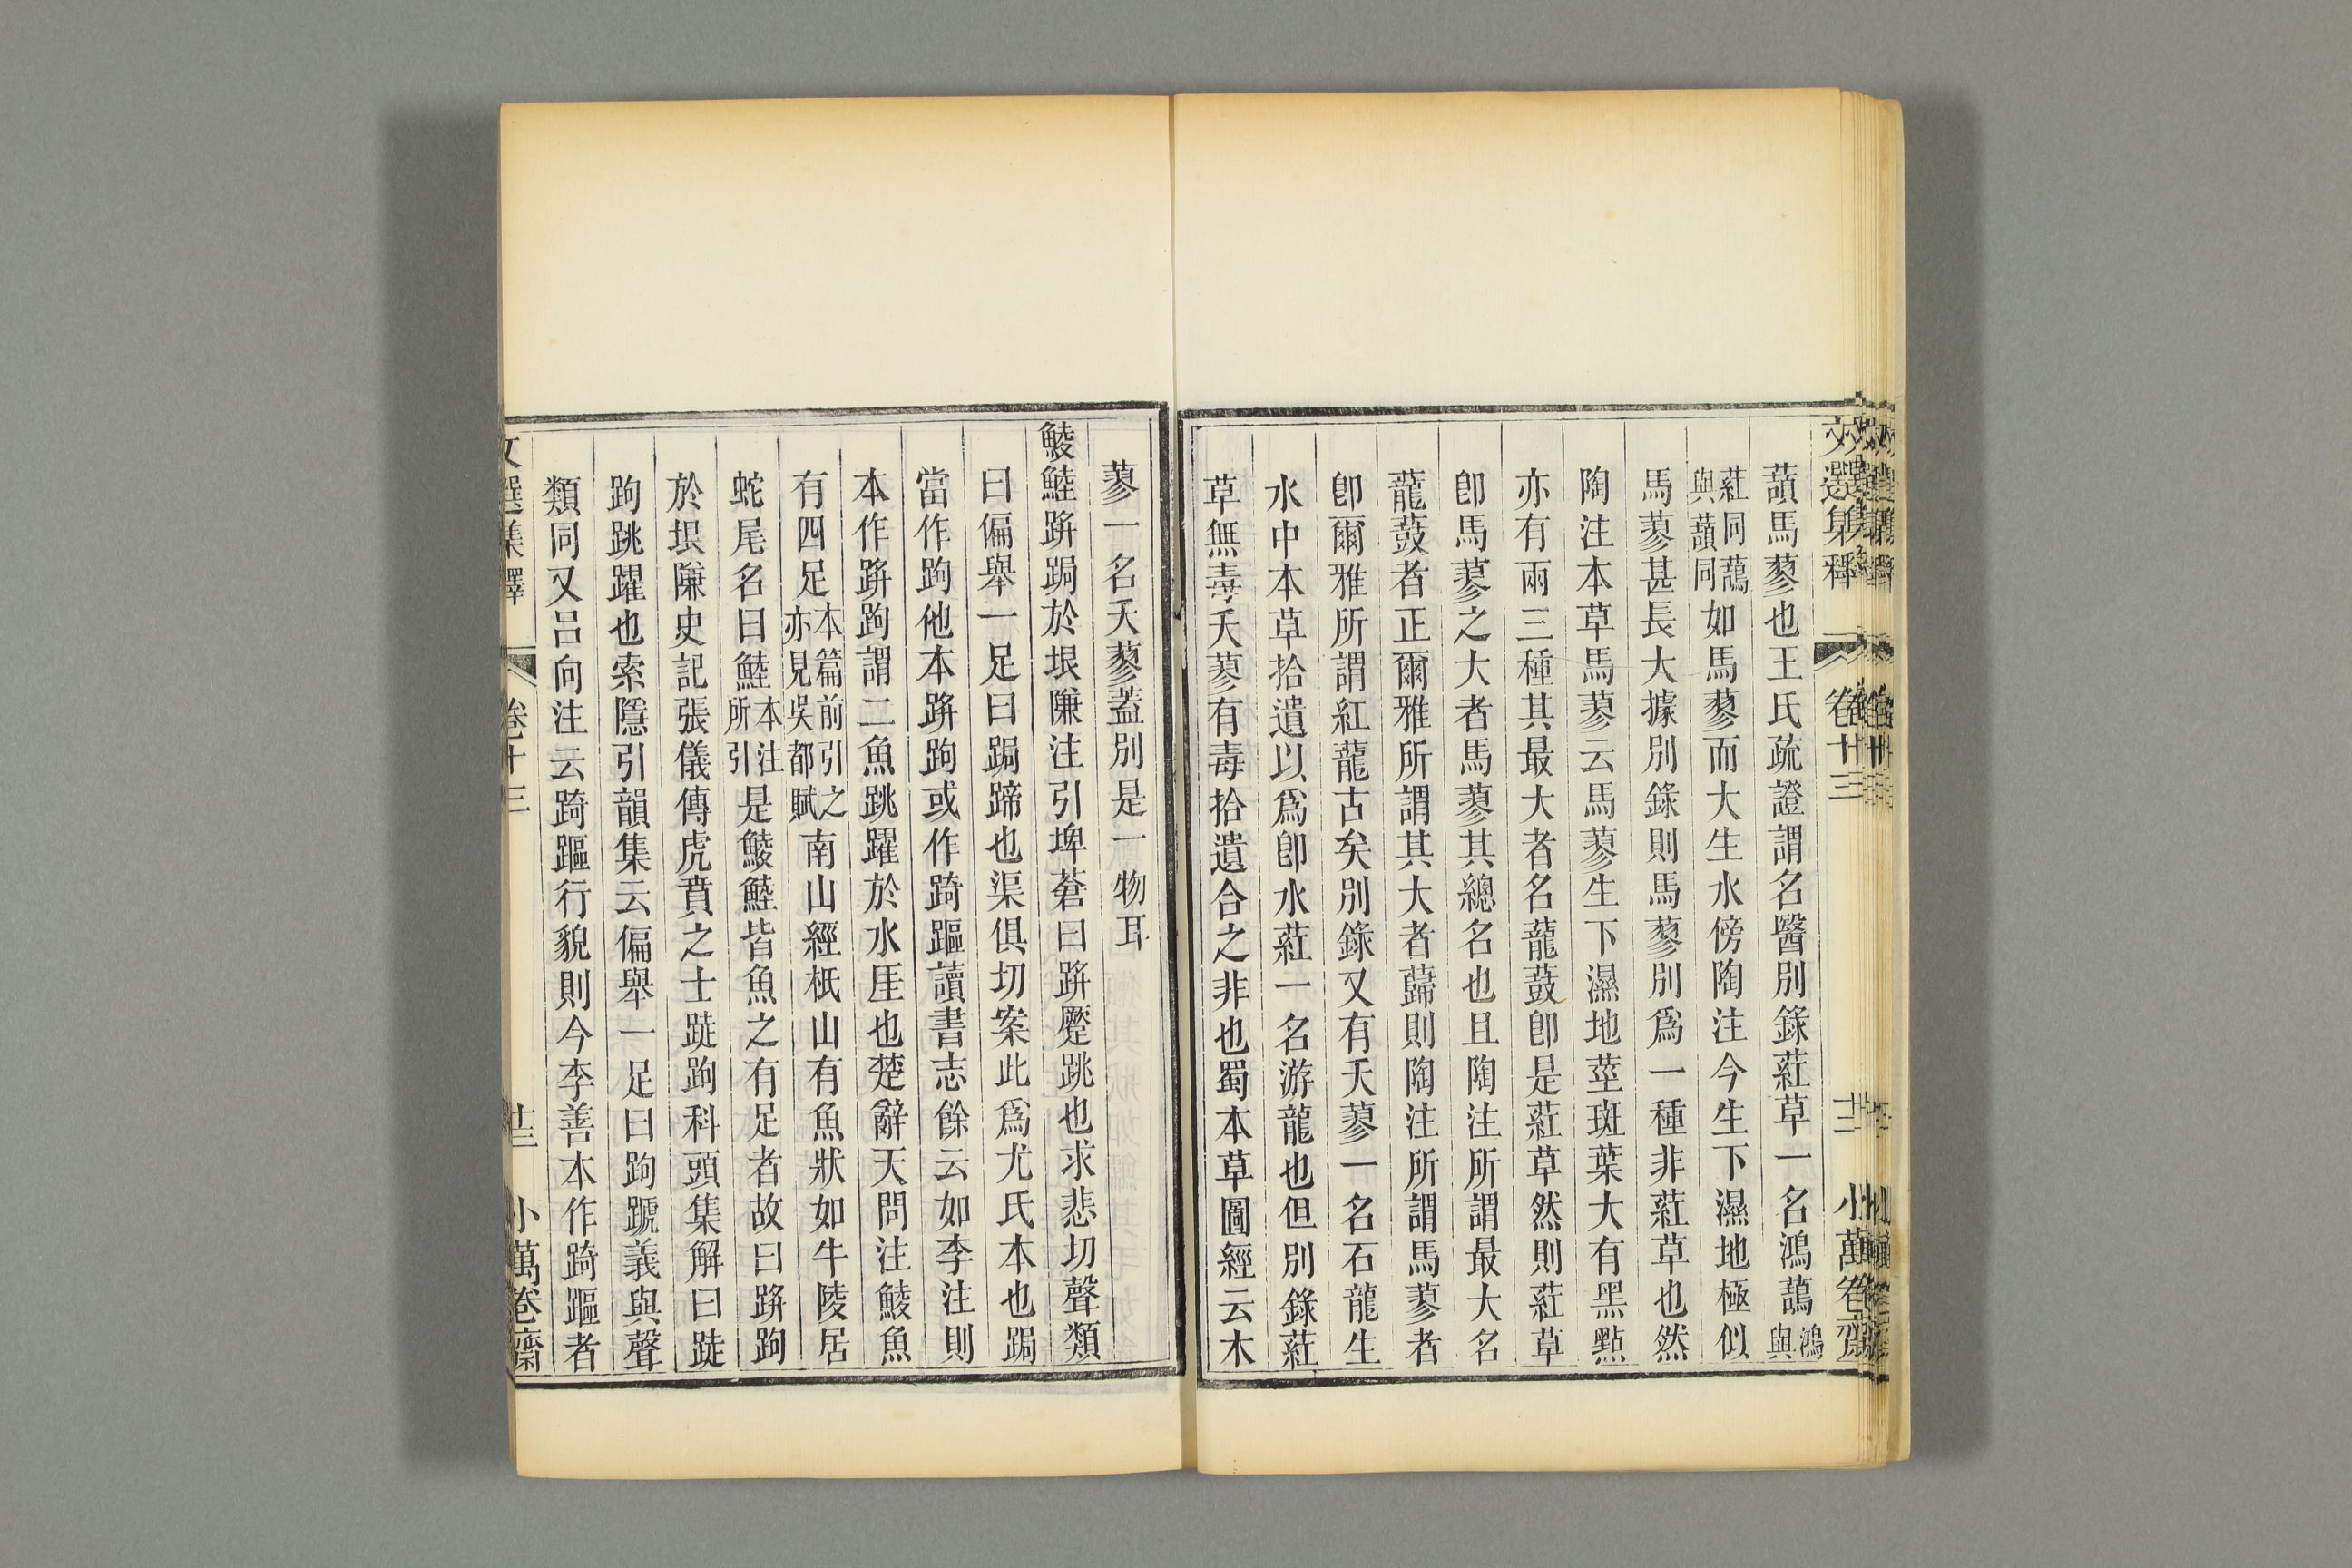 蕦馬蓼也王氏疏證謂名醫別錄葒草一名鴻䕬鴻與
葒同䕬與蘈同如馬蓼而大生水傍陶注今生下濕地極似
馬蓼甚長大據別錄則馬蓼別爲一種非葒草也然
陶注本草馬蓼云馬蓼生下濕地莖斑葉大有黑㸃
亦有兩三種其最大者名蘢薣卽是葒草然則葒草
卽馬蓼之大者馬蓼其總名也且陶注所謂最大名
蘢薣者正爾雅所謂其大者蘬則陶注所謂馬蓼者
卽爾雅所謂紅蘢古矣別錄又有天蓼一名石龍生
水中本草拾遺以爲卽水葒一名游龍也但別錄葒
草無毒天蓼有毒拾遺合之非也蜀本草圖經云木
蓼一名天蓼蓋別是一物耳
鯪鯥踦跼於垠隒注引埤蒼曰踦䠥跳也求悲切聲類
曰偏舉一足曰跼蹄也渠俱切案此爲尤氏本也跼
當作跔他本踦跔或作踦䠧讀書志餘云如李注則
本作踦跔謂二魚跳躍於水厓也楚辭天問注鯪魚
有四足本篇前引之亦見吳都賦南山經柢山有魚狀如牛陵居
蛇尾名曰鯥本注所引是鯪鯥皆魚之有足者故曰踦跔
於垠隒史記張儀傳虎賁之士跿跔科頭集解曰跿
跔跳躍也索隱引韻集云偏舉一足曰跔蹏義與聲
類同又呂向注云踦䠧行貌則今李善本作踦䠧者
文選集釋 卷十三 廿三 小萬卷齋